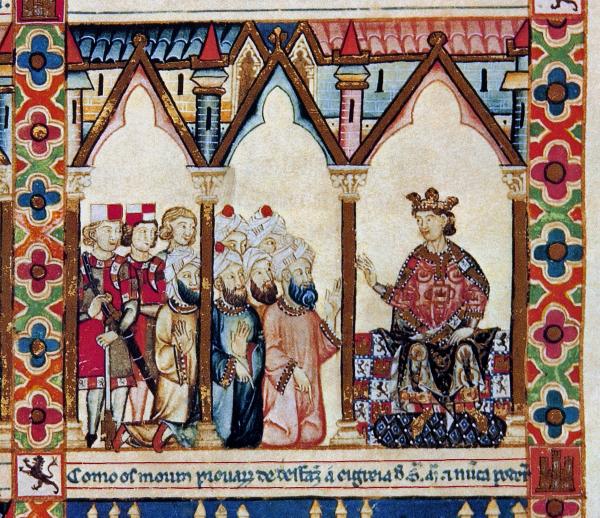 Como os mour̃ prouarõ de desfaz̃ a eigreia d̃ S. M̃. ⁊ nũca poder̃